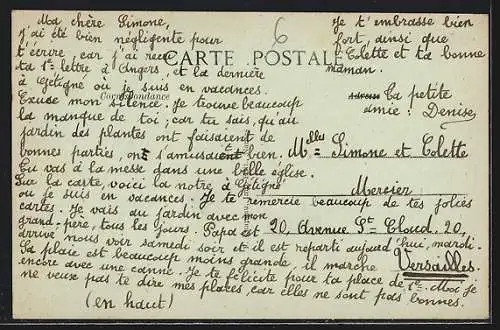 Ma chère Simone,
j'ai été bien négligente pour
t'écrire, car j'ai reçu
ta 1e lettre à Angers, et la dernière
à Gétigné où je suis en vacances.
Excuse mon silence. Je trouve beaucoup
la manque de toi; car tu sais, qu'au
jardin des plantes ont faisaient de
bonnes parties, on s'amusait bien.
Tu vas à la messe dans une belle église.
Sur la carte, voici la notre à Gétigné
ou je suis en vacances. Je te remercie beaucoup de tes jolies
cartes. Je vais au jardin avec mon
grand-père, tous les jours. Papa est
arrivé nous voir samedi soir et il est reparti aujourd'hui, mardi.
Sa plaie est beaucoup moins grande, il marche
encore avec une canne. Je te félicite pour ta place de 1e. Moi je
ne veux pas te dire mes places, car elles ne sont pas bonnes.
(en haut)
6
Je t'embrasse bien
fort, ainsi que
Colette et ta bonne
maman.
CARTE POSTALE
Correspondance
Ta petite
amie: Denise
Melles Simone et Colette
Mercier
20, Avenue St Cloud. 20,
Versailles